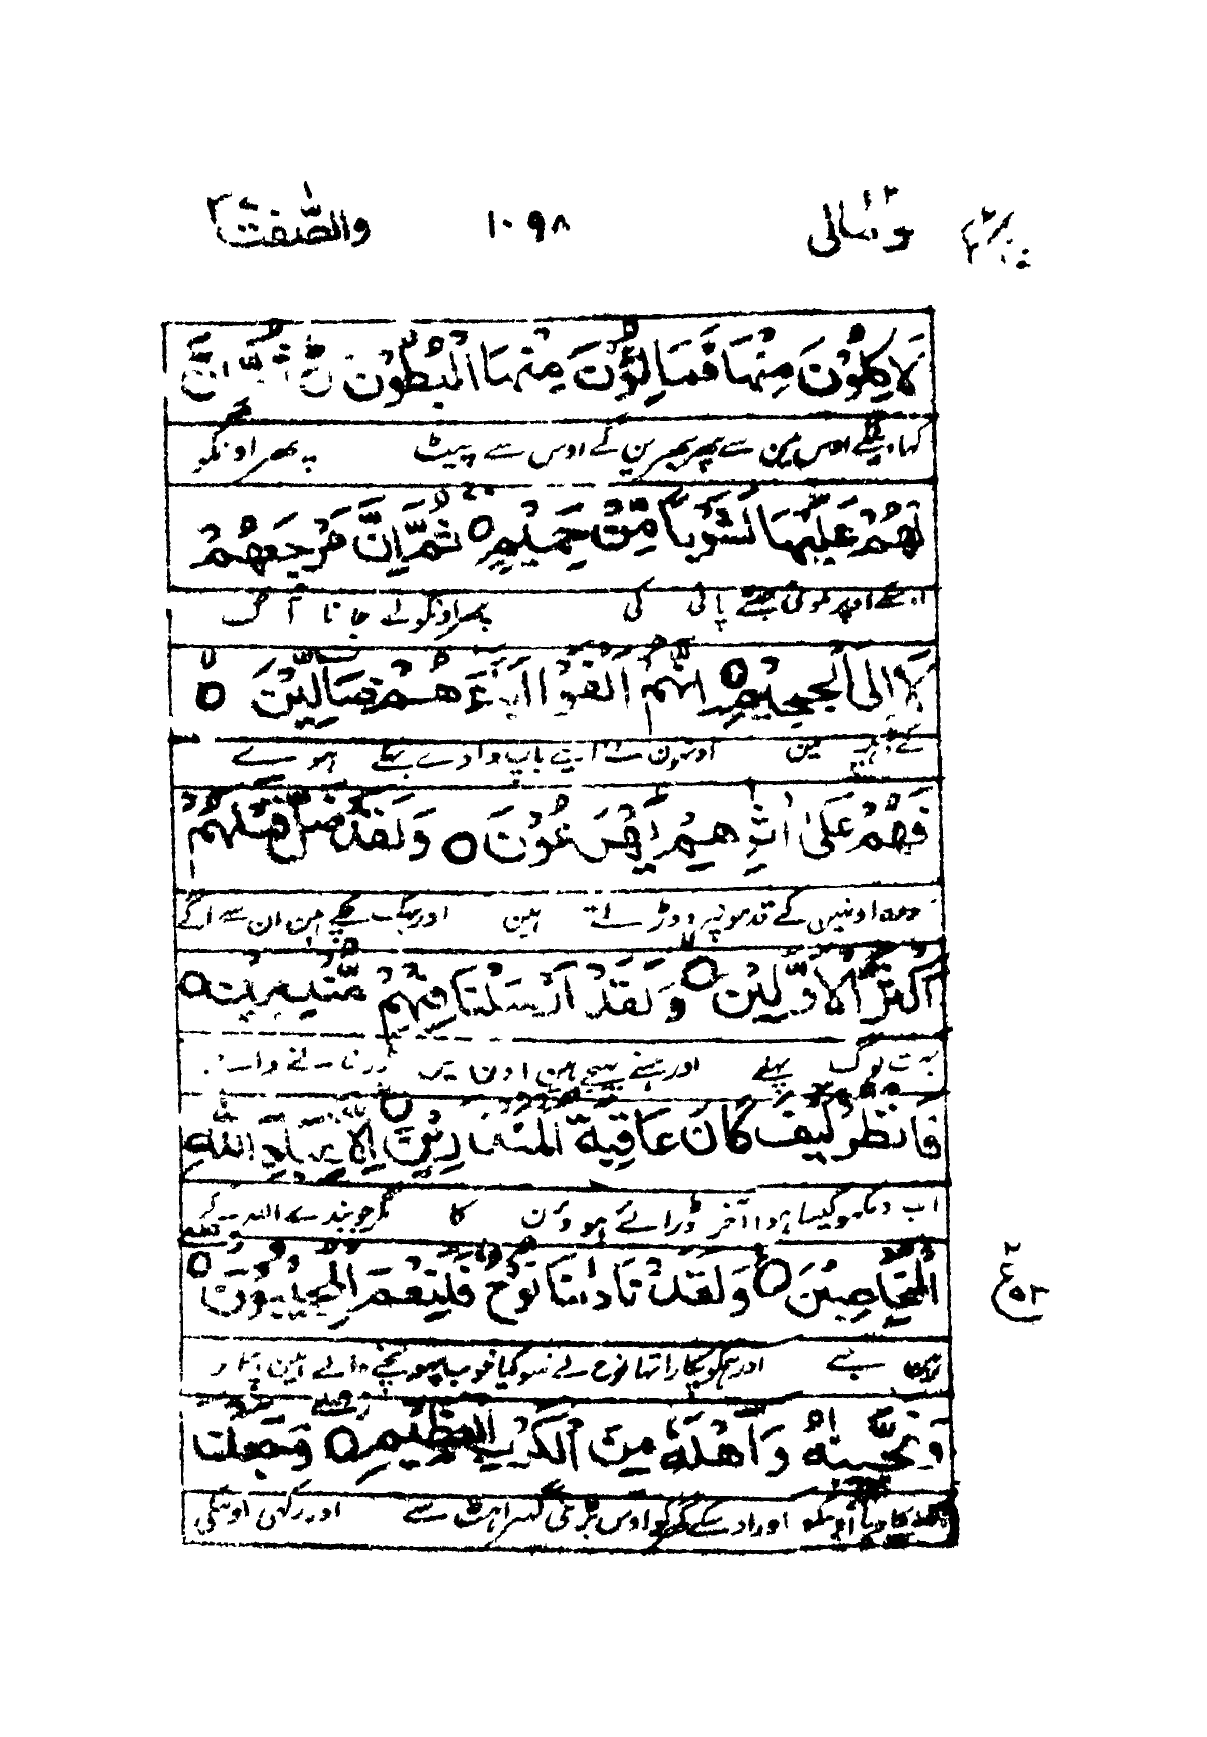 ومالی ١٠٩٨ والصّٰفّٰت
لَاٰكِلُوْنَ مِنْهَا فَمَالِـُٔوْنَ مِنْهَا الْبُطُوْنَ ثُمَّ اِنَّ
اوس مین سے پھر بھرین گے اوس سے پیٹ پھر اونکو
لَهُمْ عَلَيْهَا لَشَوْبًا مِّنْ حَمِيْمٍ ثُمَّ اِنَّ مَرْجِعَهُمْ
اوپر ملونی جلتے پانی کی پھر اونکو لے جانا آگ
لَا۟اِلَى الْجَحِيْمِ اِنَّهُمْ اَلْفَوْا اٰبَآءَهُمْ ضَآلِّيْنَ
کے ڈہیر مین اونہون نے اپنے باپ دادے بہکے ہوے
فَهُمْ عَلٰٓى اٰثٰرِهِمْ يُهْرَعُوْنَ وَلَقَدْ ضَلَّ قَبْلَهُمْ
سووہ اونہیں کے قدمونپر دوڑتے ہین اور بہک چکے ہین ان سے آگے
اَكْثَرُ الْاَوَّلِيْنَ وَلَقَدْ اَرْسَلْنَا فِيْهِمْ مُّنْذِرِيْنَ
بہت لوگ پہلے اور ہمنے بھیجے ہین اون مین ڈر سنانے والے
فَانْظُرْ كَيْفَ كَانَ عَاقِبَةُ الْمُنْذَرِيْنَ اِلَّا عِبَادَ اللّٰهِ
اب دیکھو کیسا ہوا آخر ڈرائے ہوؤن کا مگر جو بندے اللہ کے
الْمُخْلَصِيْنَ وَلَقَدْ نَادٰىنَا نُوْحٌ فَلَنِعْمَ الْمُجِيْبُوْنَ
اور ہمکو پکارا تھا نوح نے سو کیا خوب پہونچنے والے ہین پکار
وَنَجَّيْنٰهُ وَاَهْلَهٗ مِنَ الْكَرْبِ الْعَظِيْمِ وَجَعَلْنَا
اور اوسکے گھر کو اوس بڑی گھبراہٹ سے اور رکھی اوسکی